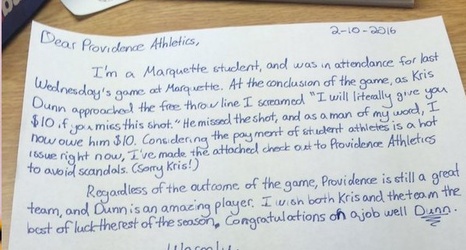 2-10-2016
Dear Providence Athletics,
I'm a Marquette student, and was in attendance for last
Wednesday's game at Marquette. At the conclusion of the game, as Kris
Dunn approached the free throw line I screamed "I will literally give you
$10 if you miss this shot." He missed the shot, and as a man of my word, I
now owe him $10. Considering the payment of student athletes is a hot
issue right now, I've made the attached check out to Providence Athletics
to avoid scandals. (Sorry Kris!)
Regardless of the outcome of the game, Providence is still a great
team, and Dunn is an amazing player. I wish both Kris and the team the
best of luck the rest of the season. Congratulations on a job well Dunn.